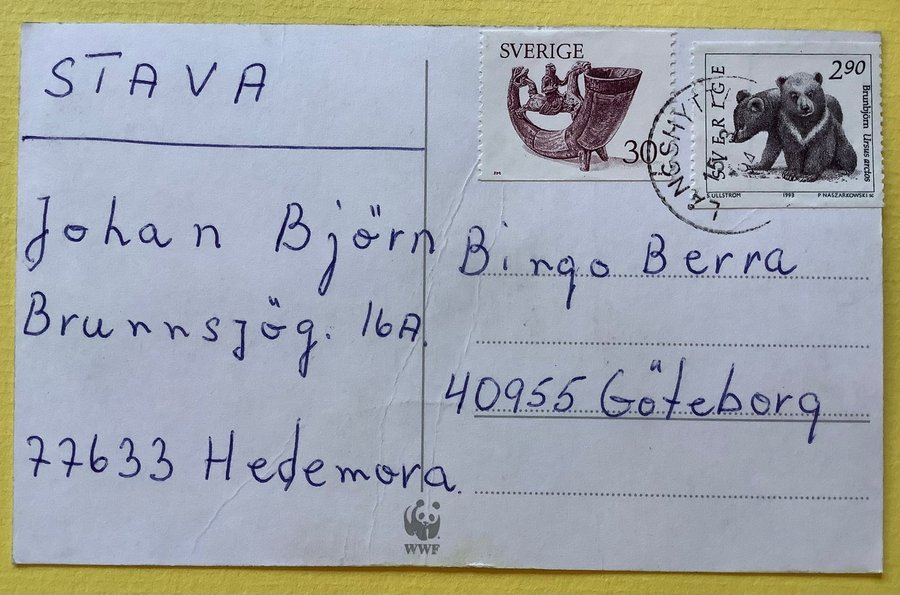 STAVA
Johan Björn
Brunnsjög. 16A.
77633 Hedemora.
SVERIGE
30
SVERIGE
2.90
Brunbjörn Ursus arctos
S. ULLSTRÖM 1993 P. NASZARKOWSKI SC
LÅNGSHYTTAN
Bingo Berra
40955 Göteborg
WWF